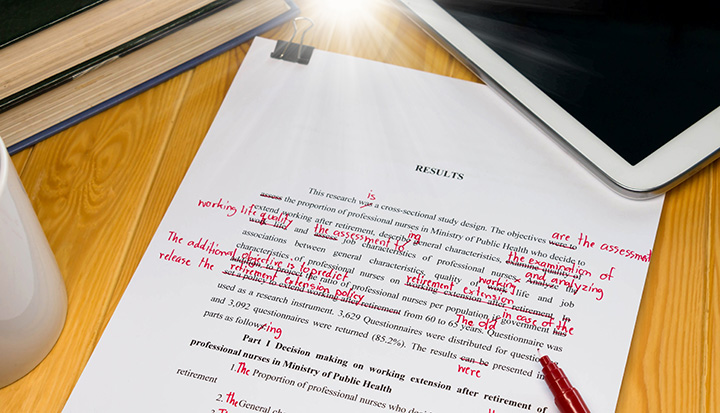 RESULTS
is
This research was a cross-sectional study design. The objectives were to are the assessment
assess the proportion of professional nurses in Ministry of Public Health who decide to
extend working after retirement, describe ing general characteristics, examine quality of the examination of
working life quality work life and assess the assessment to job characteristics of professional nurses. Analyze the and analyzing
associations between general characteristics, quality of work working life and job
The additional objective is to predict characteristics of professional nurses on working extension after retirement retirement extension
release the the ratio of professional nurses per population if government has in case of the
retirement extension policy set a policy to extend working after retirement from 60 to 65 years. Questionnaire was
used as a research instrument. 3,629 Questionnaires were distributed for The old
and 3,092 questionnaires were returned (85.2%). The results can be presented in
parts as following were
Part 1 Decision making on working extension after retirement
professional nurses in Ministry of Public Health
1. The Proportion of professional nurses who
retirement
2. the General